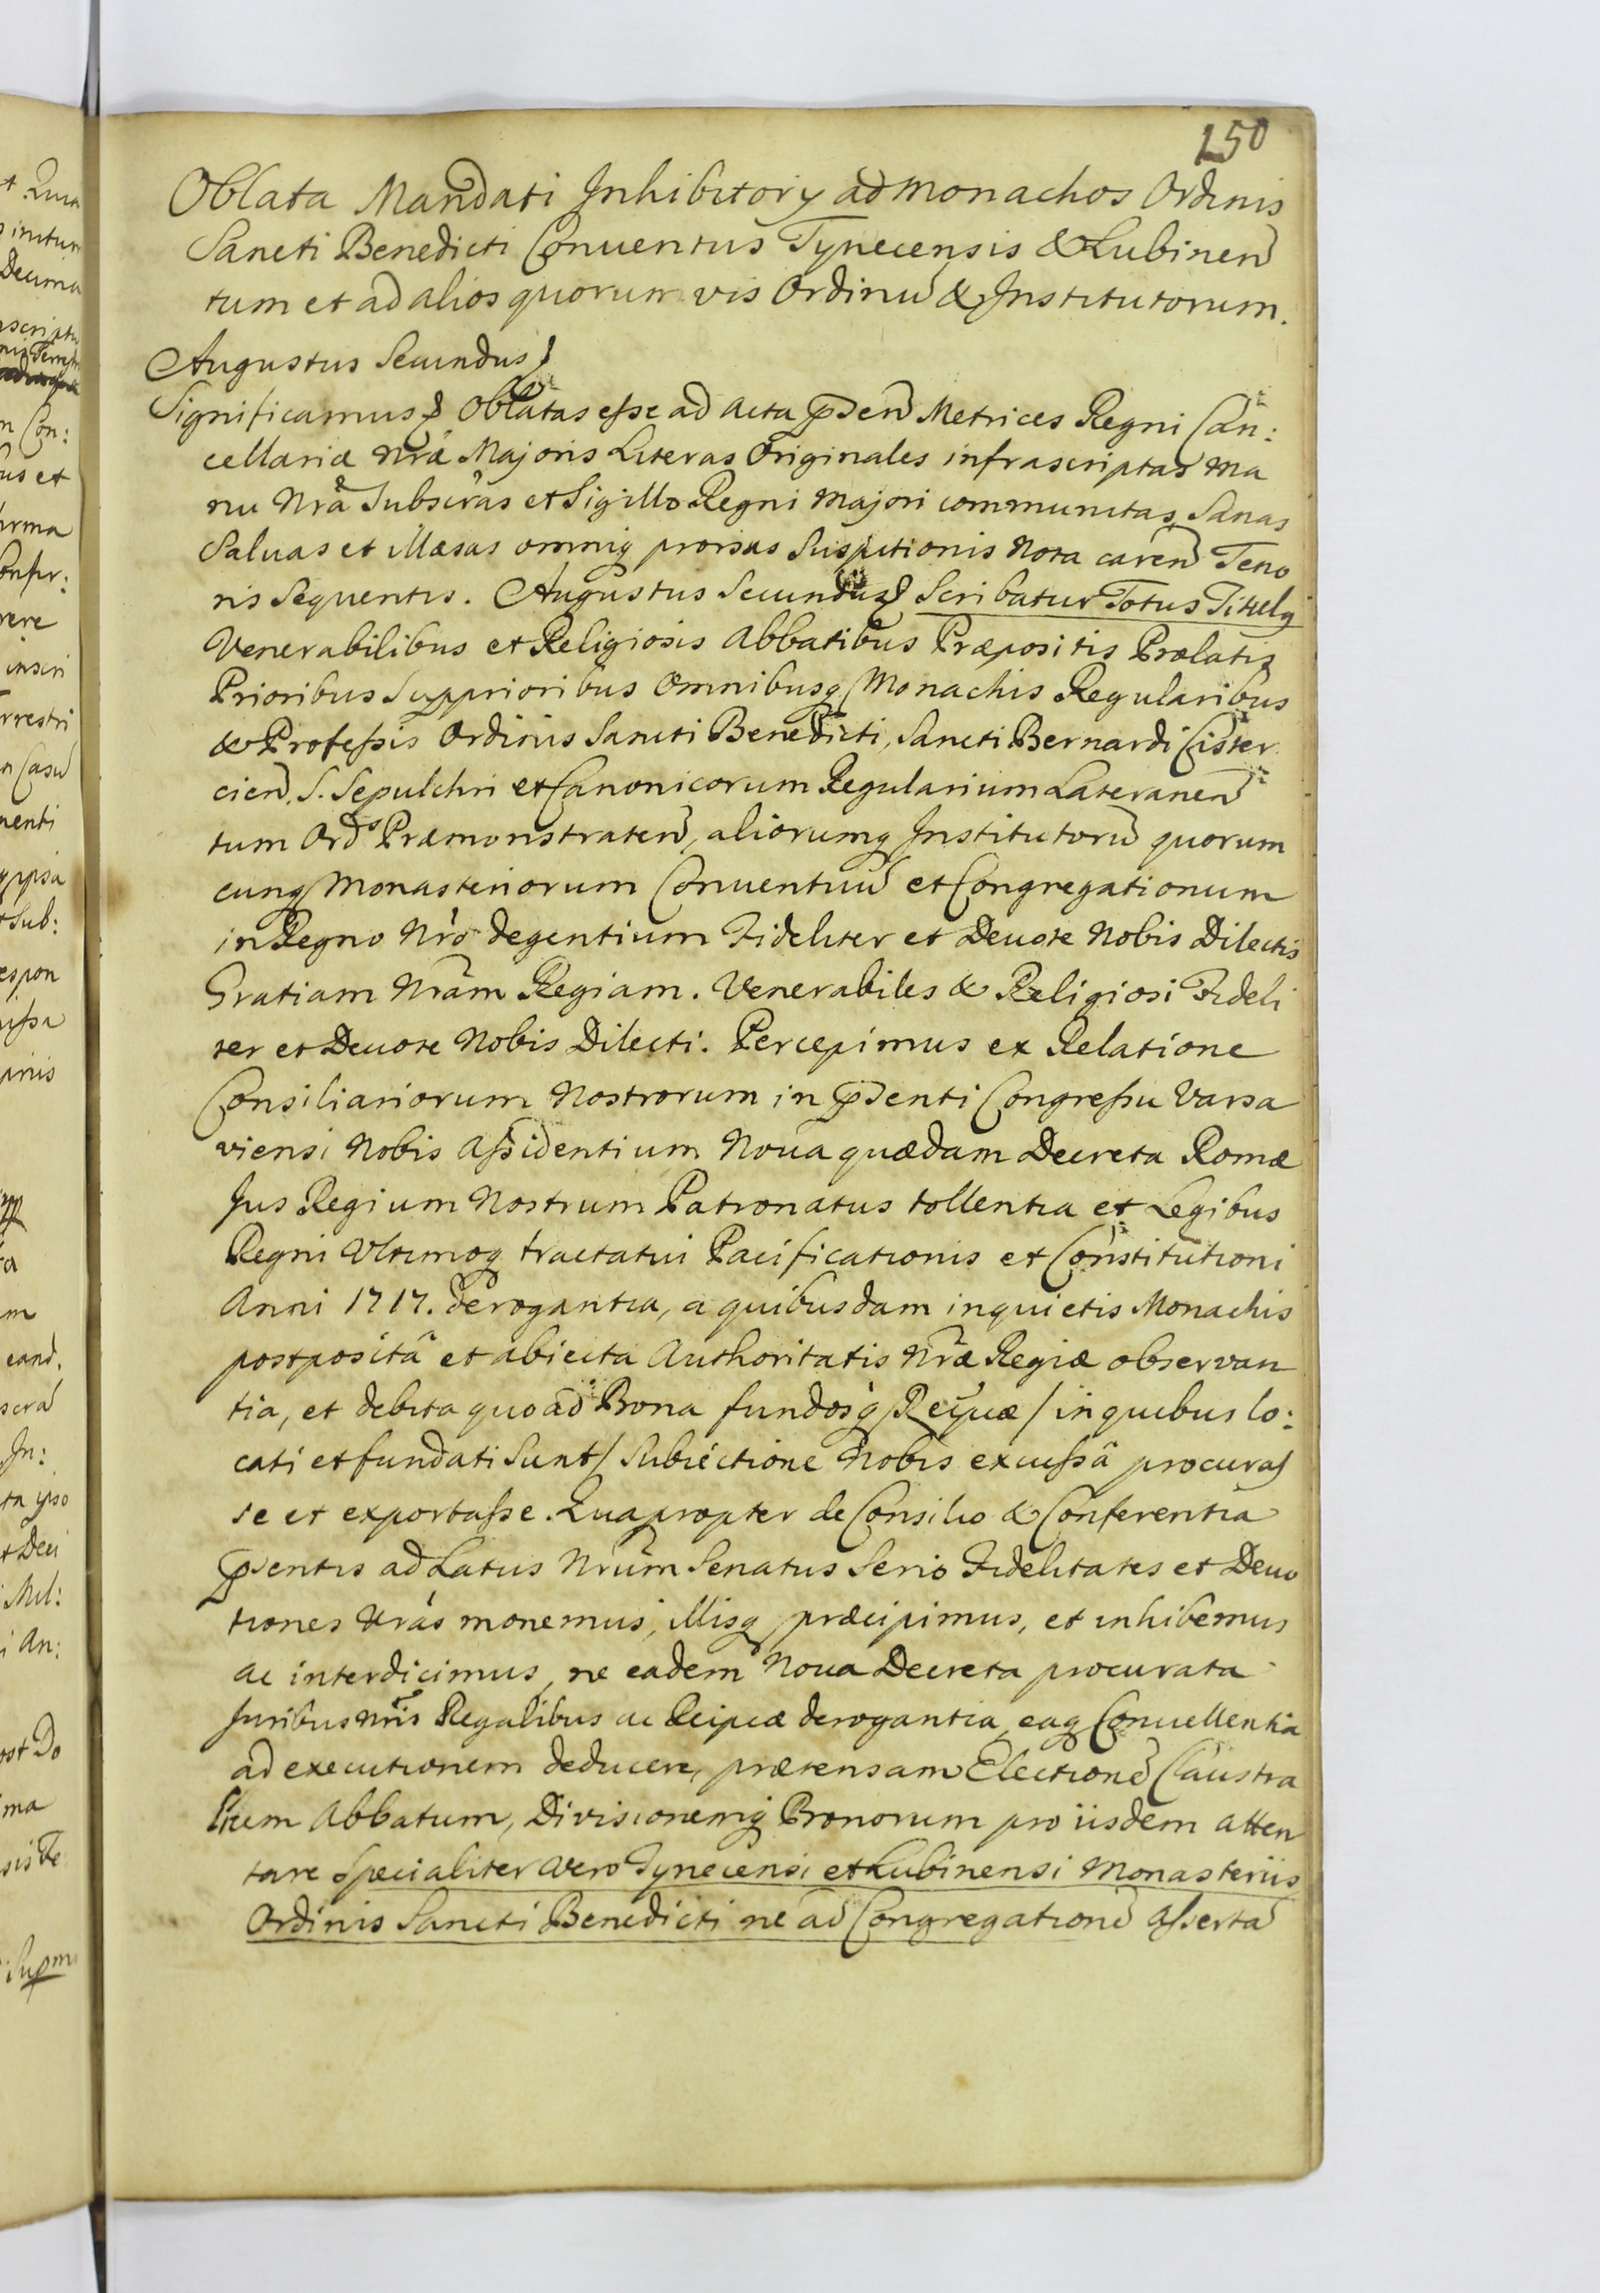 150
Oblata Mandati Inhibitorÿ ad Monachos Ordinis
Sancti Benedicti Conuentus Tynecensis & Lubinen
tum et ad alios quorum vis Ordinũ & Institutorum.
Augustus Secundus
Significamus Oblatas eſse ad Acta p̃sen Metrices Regni Can:
cellariæ Nræ Majoris Literas Originales infrascriptas Ma
nu Nrã Subscr̃as et Sigillo Regni Majori communitas Sanas
Saluas et illæsas omniq prorsus Suspitionis Nota caren Teno
ris Sequentis. Augustus Secundus Scribatur Totus Titulq
Venerabilibus et Religiosis Abbatibus Præpositis Prælatis
Prioribus Supprioribus Omnibusq Monachis Regularibus
& Profeſsis Ordinis Sancti Benedicti, Sancti Bernardi Cister
cien, S. Sepulchri et Canonicorum Regularium Lateranen
tum Ords Præmonstraten, aliorumq Institutorũ quorum
cunq Monasteriorum Conuentuũ et Congregationum
in Regno Nrõ degentium Fideliter et Deuote Nobis Dilectis
Gratiam Nrãm Regiam. Venerabiles & Religiosi Fideli
ter et Deuote Nobis Dilecti. Percepimus ex Relatione
Consiliariorum Nostrorum in p̃senti Congreſsu Varsa
viensi Nobis Aſsidentium Noua quædam Decreta Romæ
Jus Regium Nostrum Patronatus tollentia et Legibus
Regni Ultimoq tractatui Pacificationis et Constitutioni
Anni 1717. derogantia, a quibusdam inquietis Monachis
postpositâ et abiecta Authoritatis Nræ Regiæ observan
tia, et debita quoad Bona fundosq Reipuæ / in quibus lo:
cati et fundati Sunt / Subiectione Nobis excuſsâ procuraſ
se et exportaſse. Quapropter de Consilio & Conferentia
p̃sentis ad Latus Nrũm Senatus Serio Fidelitates et Deuo
tiones Vrãs monemus, illisq præcipimus, et inhibemus
ac interdicimus, ne eadem Noua Decreta procurata
Juribus Nrĩs Regalibus ac Reipcæ derogantia eaq Conuellentia
ad executionem deducere, prætensam Electionẽ Claustra
lium Abbatum, Divisionemq Bonorum pro iisdem atten
tare specialiter vero Tynecensi et Lubinensi Monasteriis
Ordinis Sancti Benedicti ne ad Congregationẽ aſsertã